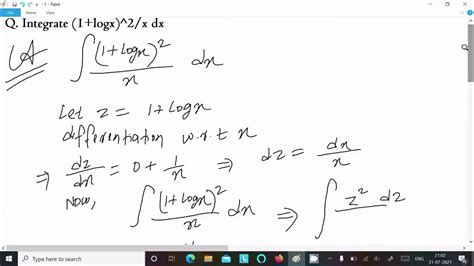 1 - Paint
Q. Integrate (I+logx)^2/x dx
A ∫ (1+logx)^2/x dx
Let z = 1+logx
differentiation w.r.t x
⇒ dz/dx = 0 + 1/x ⇒ dz = dx/x
Now, ∫ (1+logx)^2/x dx ⇒ ∫ z^2 dz
Type here to search
ENG
21:02
31-07-2021